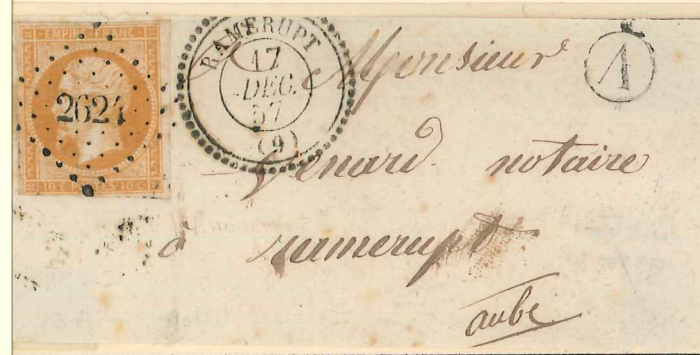 EMPIRE FRANC
2624
10 C. POSTES 10 C.
RAMERUPT
17
DEC.
57
(9)
V
Monsieur
Venard notaire
à ramerupt
aube